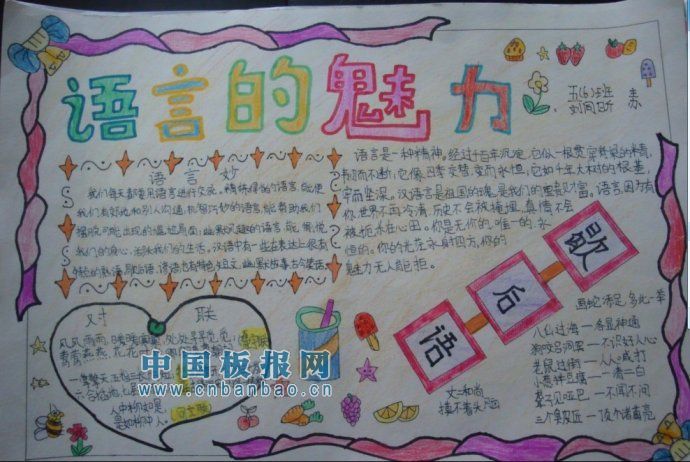 语言的魅力
五(6)班
语言妙
我们每天都要用语言进行交流。精炼得当的语言,能使
我们有好地和别人沟通,机智巧妙的语言,能帮助我们
摆脱可能出现的尴尬局面,幽默风趣的语言,能愉悦
我们的身心,活跃我们的生活。汉语中有一些在表达上很有
语言是一种精神。经过千百年沉淀,它似一根贯穿
它像四季交替,变而永恒,它如千年大木村的根基,
牢而坚深。汉语言是祖国的魂,是我们的思想财富。语言,因为有
你,世界不再冷清,历史不会被掩埋,真情不会
被扼杀在心田。你是无价的,唯一的,永
恒的。你的光芒永射四方,你的
魅力无人能拒。
歇后语
对联
风风雨雨,暖暖寒寒,处处寻寻觅觅,
莺莺燕燕,花花
人中柳如是,
是如柳中人。
中国板报网
www.cnbanbao.cn
丈二和尚
摸不着头脑
画蛇添足 多此一举
八仙过海 — 各显神通
狗咬吕洞宾 — 不识好人心
老鼠过街 — 人人喊打
小葱拌豆腐 — 一清二白
聋子见哑巴 — 不闻不问
三个臭皮匠 — 顶个诸葛亮